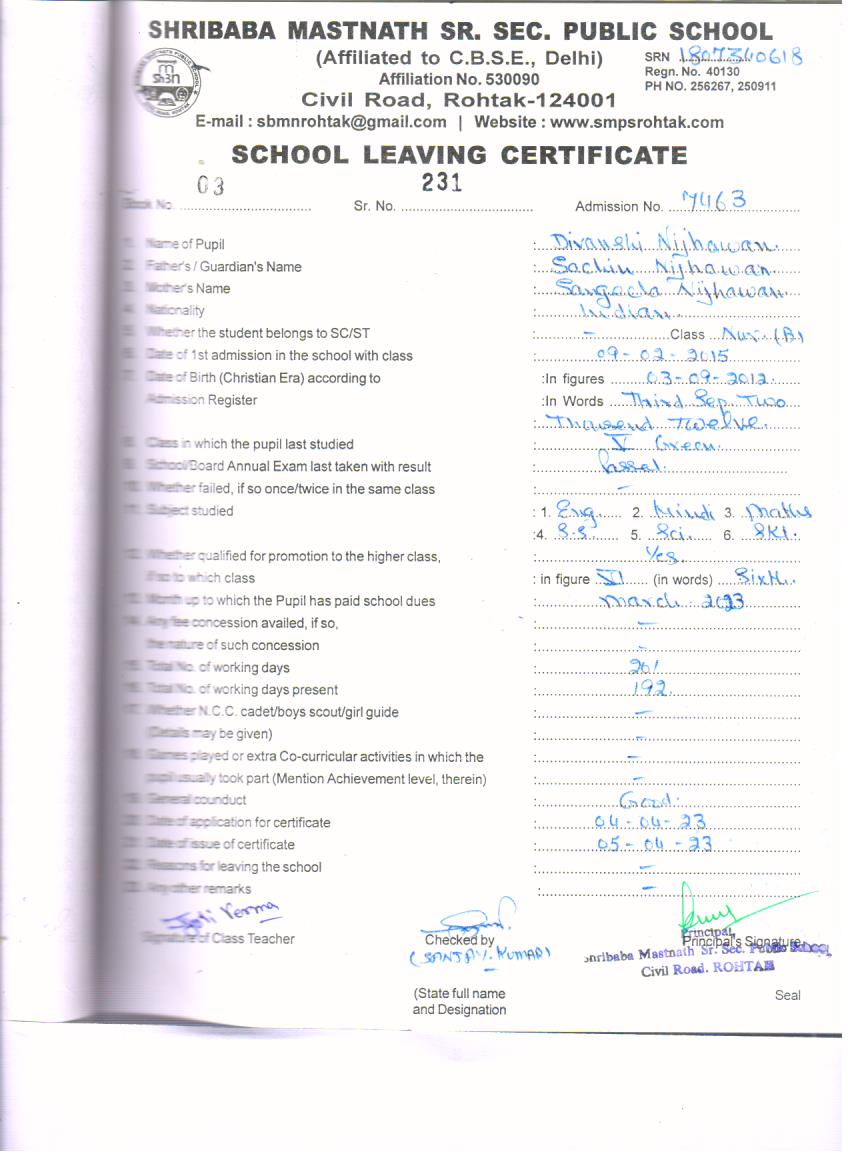 SHRIBABA MASTNATH SR. SEC. PUBLIC SCHOOL
(Affiliated to C.B.S.E., Delhi)
SRN 1807340618
Affiliation No. 530090
Regn. No. 40130
Civil Road, Rohtak-124001
PH NO. 256267, 250911
E-mail : sbmnrohtak@gmail.com | Website : www.smpsrohtak.com
SCHOOL LEAVING CERTIFICATE
Book No. 03 Sr. No. 231 Admission No. 7463
1. Name of Pupil : Divanshi Nijhawan
2. Father's / Guardian's Name : Sachin Nijhawan
3. Mother's Name : Sangeeta Nijhawan
4. Nationality : Indian
5. Whether the student belongs to SC/ST : – Class Nur. (B)
6. Date of 1st admission in the school with class : 09-02-2015
7. Date of Birth (Christian Era) according to :In figures 03-09-2012
Admission Register :In Words Third Sep Two
: Thausend Twelve
8. Class in which the pupil last studied : V Green
9. School/Board Annual Exam last taken with result : Passed
10. Whether failed, if so once/twice in the same class : –
11. Subject studied : 1. Eng. 2. Hindi 3. Maths
:4. S.S. 5. Sci. 6. SKt.
12. Whether qualified for promotion to the higher class, : Yes
if so to which class : in figure VI (in words) Sixth
13. Month up to which the Pupil has paid school dues : March 2023
14. Any fee concession availed, if so, : –
the nature of such concession : –
15. Total No. of working days : 201
16. Total No. of working days present : 192
17. Whether N.C.C. cadet/boys scout/girl guide : –
(Details may be given) : –
18. Games played or extra Co-curricular activities in which the : –
pupil usually took part (Mention Achievement level, therein) : –
19. General counduct : Good
20. Date of application for certificate : 04-04-23
21. Date of issue of certificate : 05-04-23
22. Reasons for leaving the school : –
23. Any other remarks : –
Jyoti Verma
Signature of Class Teacher Checked by Principal's Signature
Principal
(SANJAY KUMAR) Shribaba Mastnath Sr. Sec. Public School
Civil Road. ROHTAK
(State full name Seal
and Designation